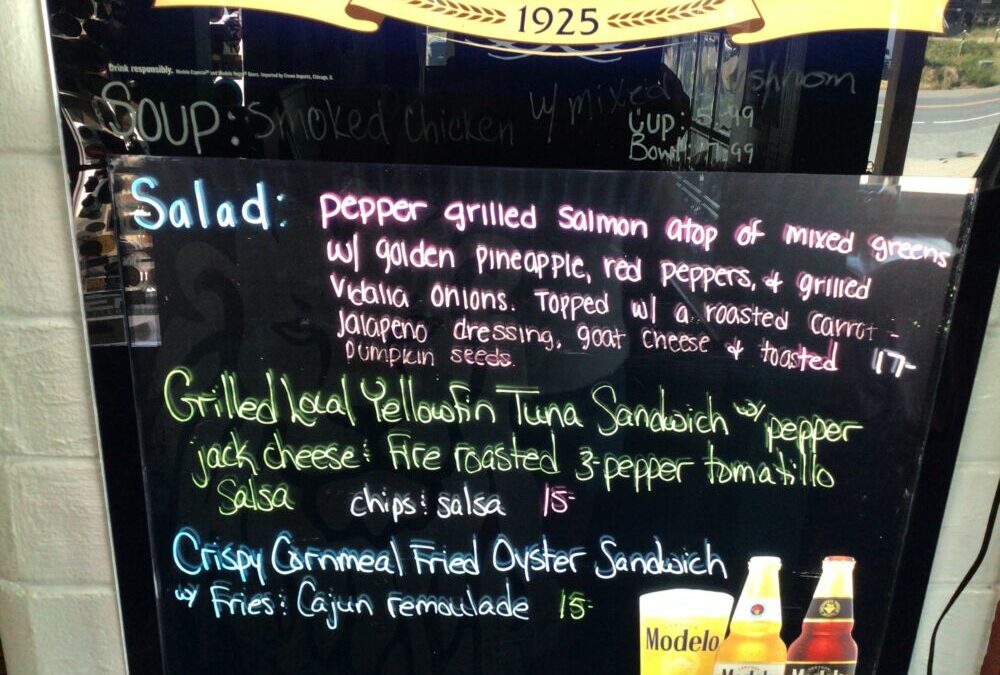 1925
Drink responsibly. Modelo Especial® and Modelo Negra® Beers. Imported by Crown Imports, Chicago, IL
Soup: Smoked Chicken w/ mixed mushroom
Cup: 5.49
Bowl: 7.99
Salad: pepper grilled salmon atop of mixed greens
w/ golden pineapple, red peppers, & grilled
Vidalia onions. Topped w/ a roasted carrot -
Jalapeno dressing, goat cheese & toasted 17-
pumpkin seeds.
Grilled Local Yellowfin Tuna Sandwich w/ pepper
jack cheese & Fire roasted 3-pepper tomatillo
Salsa chips & salsa 15-
Crispy Cornmeal Fried Oyster Sandwich
w/ Fries & Cajun remoulade 15-
Modelo